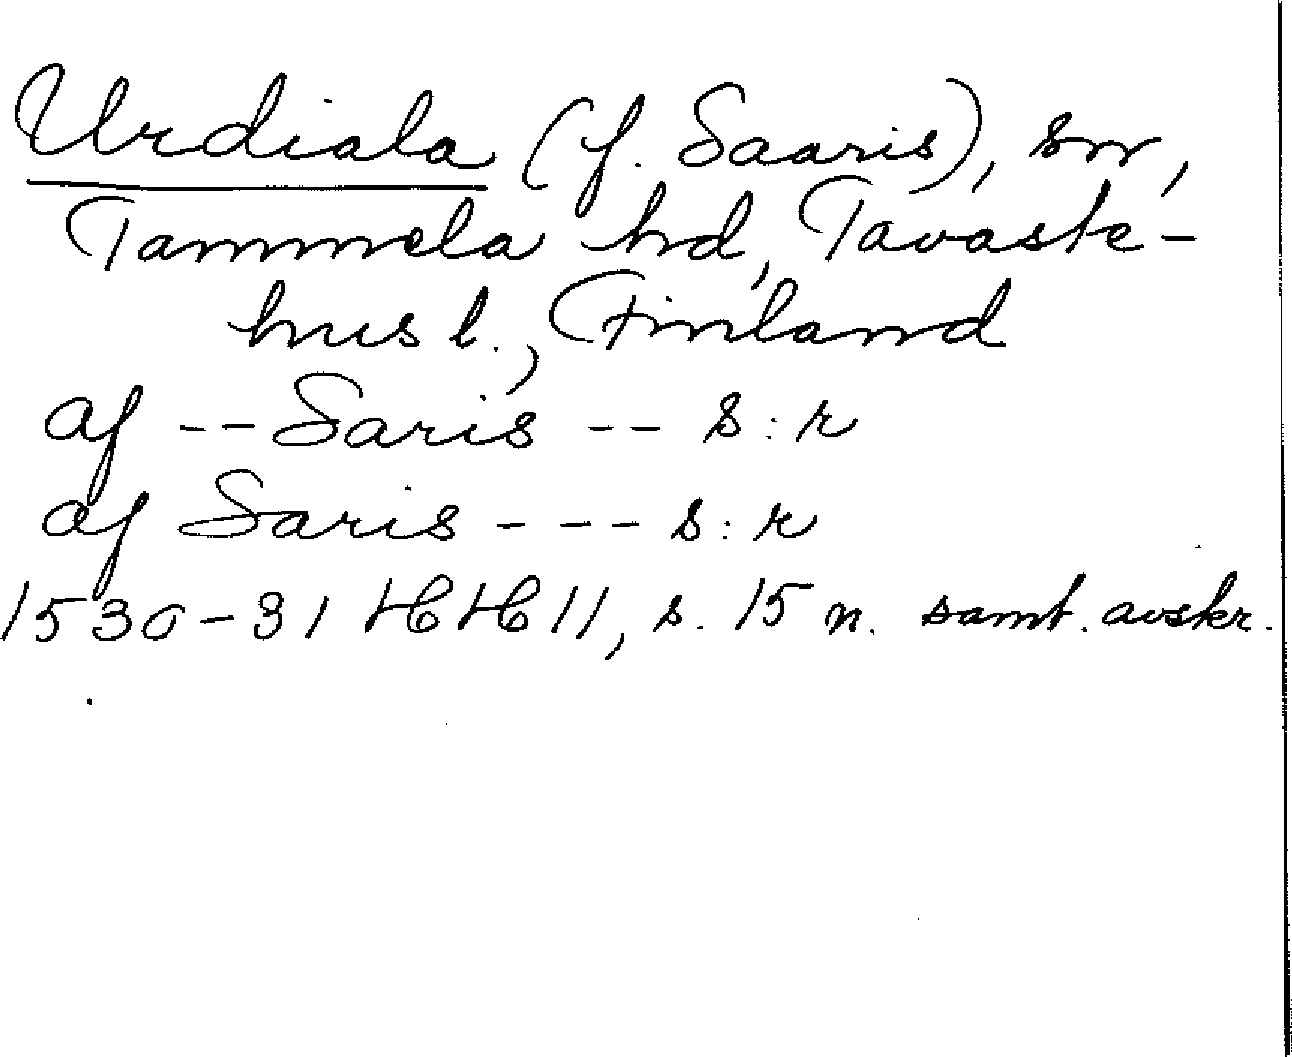 Urdiala (f. Saaris), sn,
Tammela hd, Tavaste-
hus l., Finland
af -- Saris -- s:n
af Saris - - - s:n
1530-31 HH 11, s. 15 n. samt. avskr.